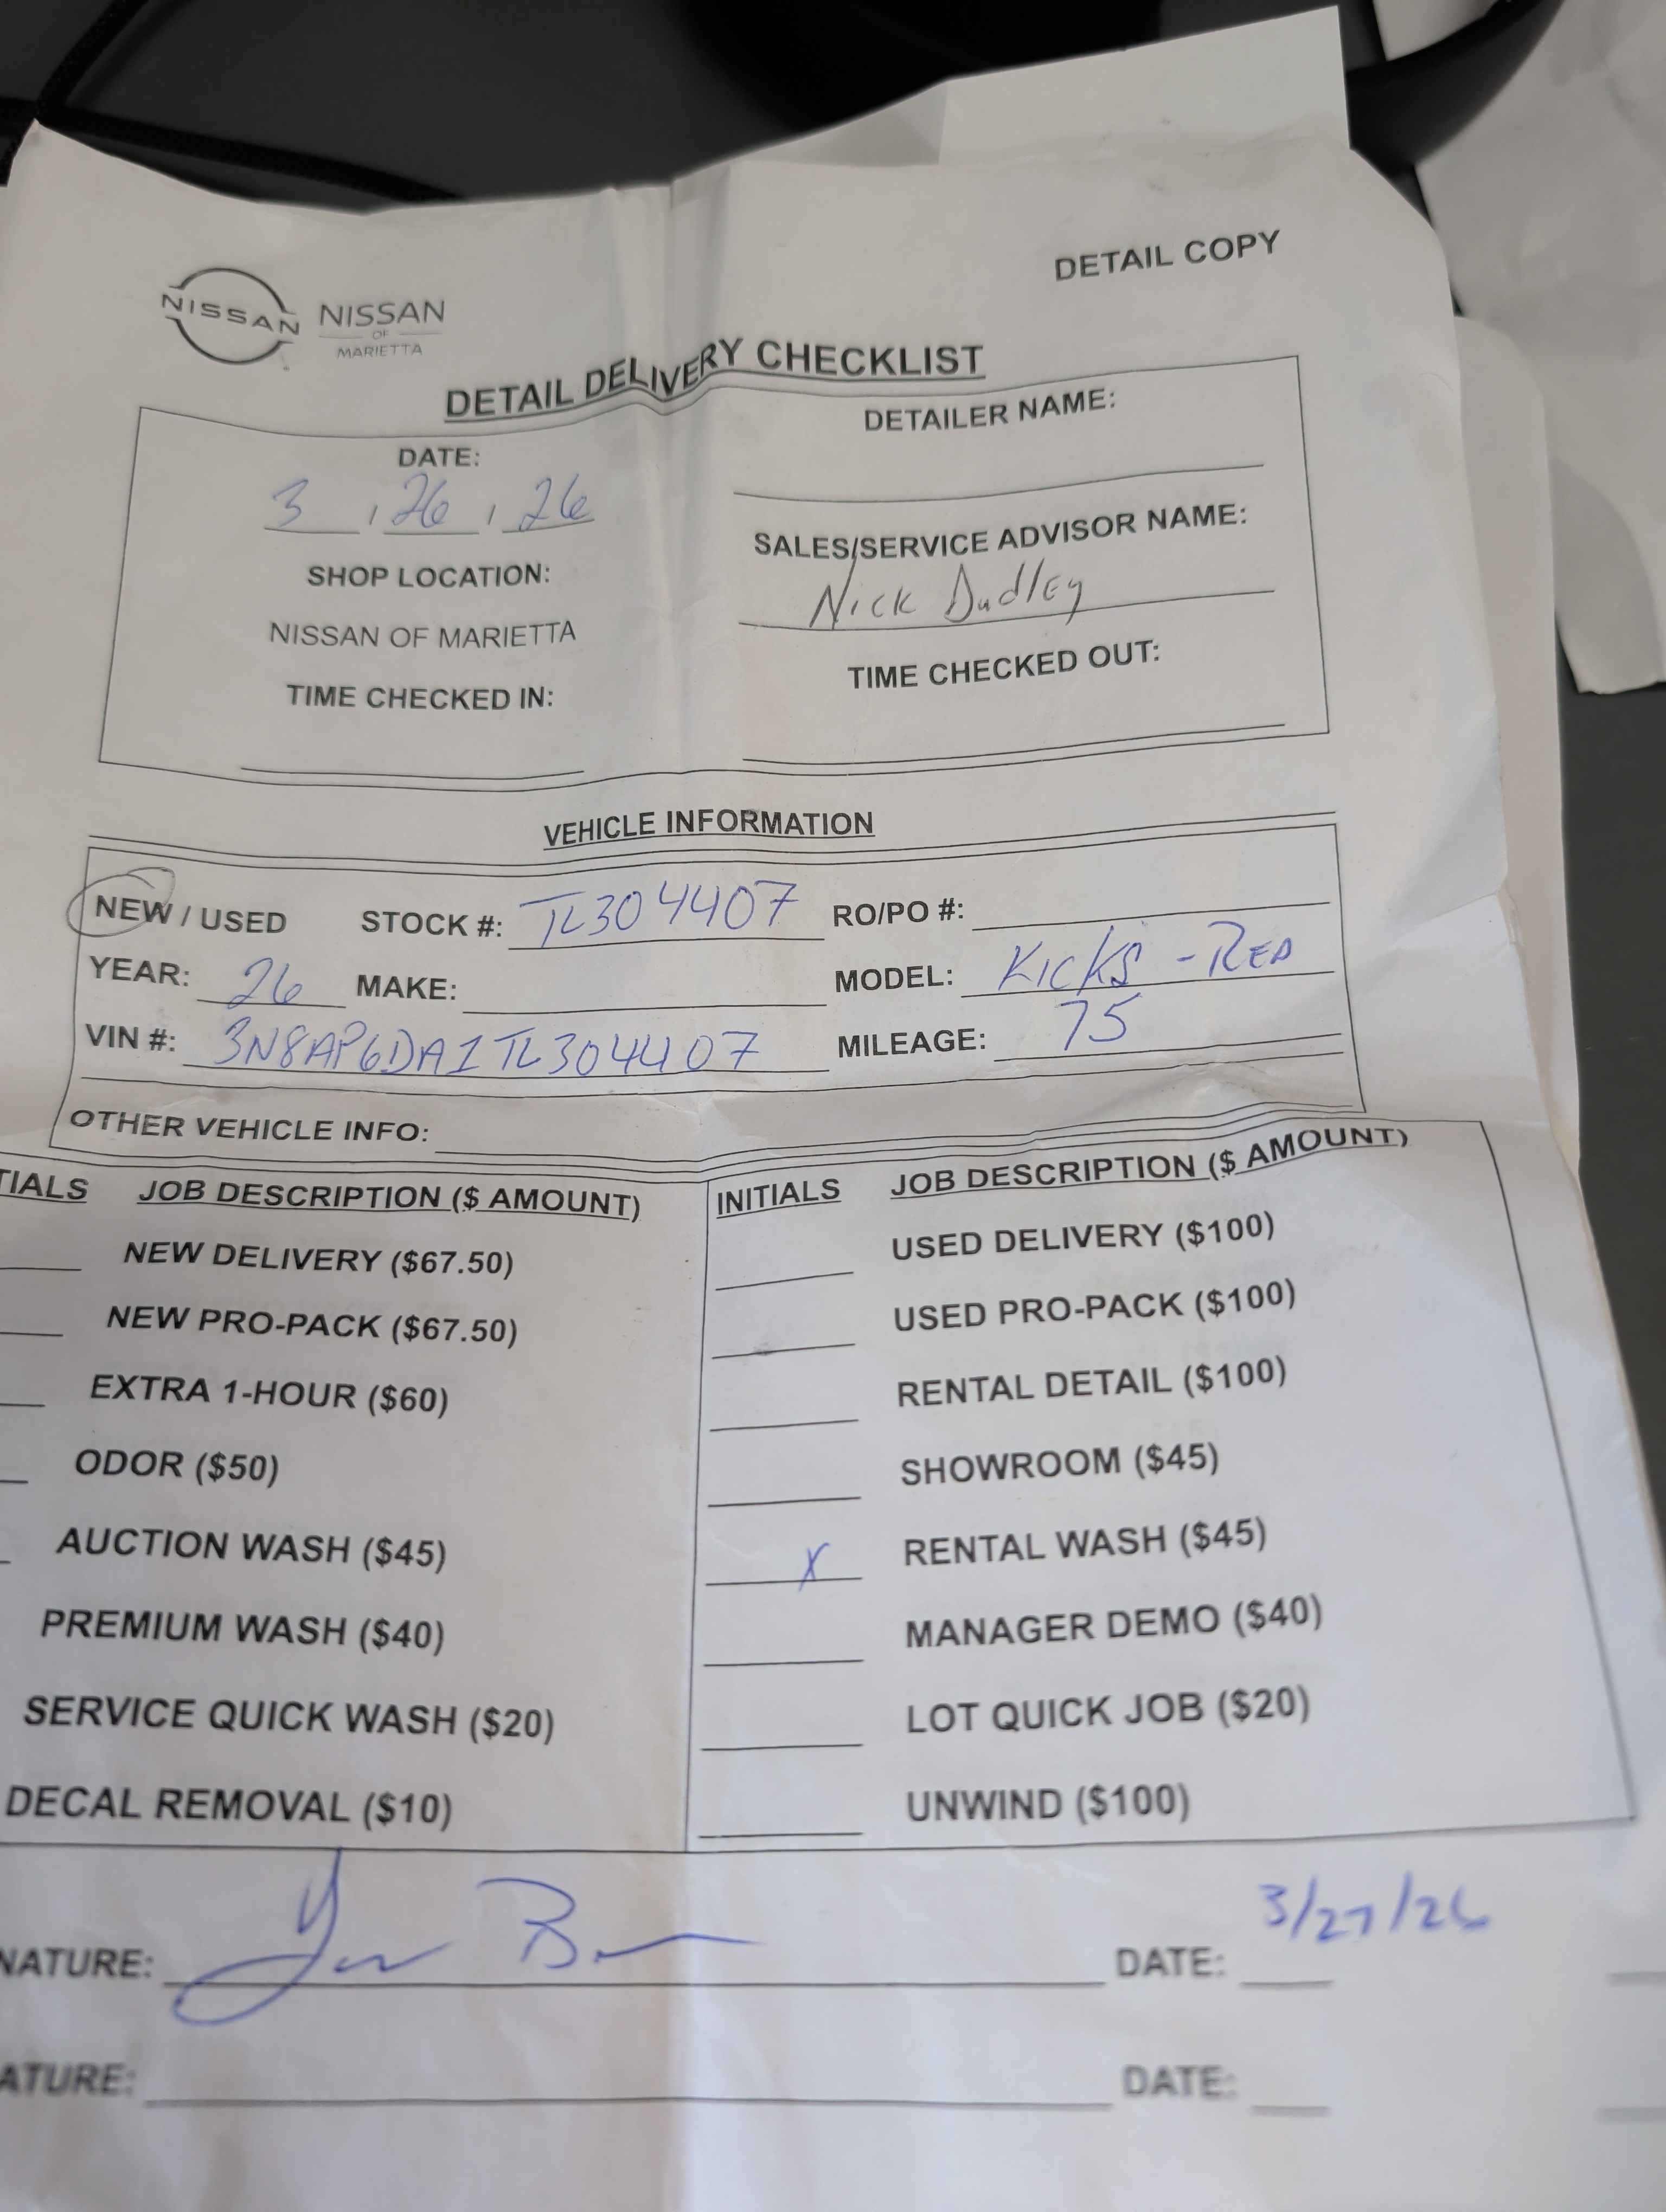 DETAIL COPY
NISSAN NISSAN
OF
MARIETTA
DETAIL DELIVERY CHECKLIST
DATE:
3 / 26 / 26
SHOP LOCATION:
NISSAN OF MARIETTA
TIME CHECKED IN:
DETAILER NAME:
SALES/SERVICE ADVISOR NAME:
Nick Dudley
TIME CHECKED OUT:
VEHICLE INFORMATION
NEW / USED STOCK #: TL304407 RO/PO #:
YEAR: 26 MAKE: MODEL: KICKS - RED
VIN #: 3N8AP6DA1TL304407 MILEAGE: 75
OTHER VEHICLE INFO:
TIALS JOB DESCRIPTION ($ AMOUNT) INITIALS JOB DESCRIPTION ($ AMOUNT)
NEW DELIVERY ($67.50) USED DELIVERY ($100)
NEW PRO-PACK ($67.50) USED PRO-PACK ($100)
EXTRA 1-HOUR ($60) RENTAL DETAIL ($100)
ODOR ($50) SHOWROOM ($45)
AUCTION WASH ($45) X RENTAL WASH ($45)
PREMIUM WASH ($40) MANAGER DEMO ($40)
SERVICE QUICK WASH ($20) LOT QUICK JOB ($20)
DECAL REMOVAL ($10) UNWIND ($100)
NATURE: DATE: 3/27/26
ATURE: DATE: